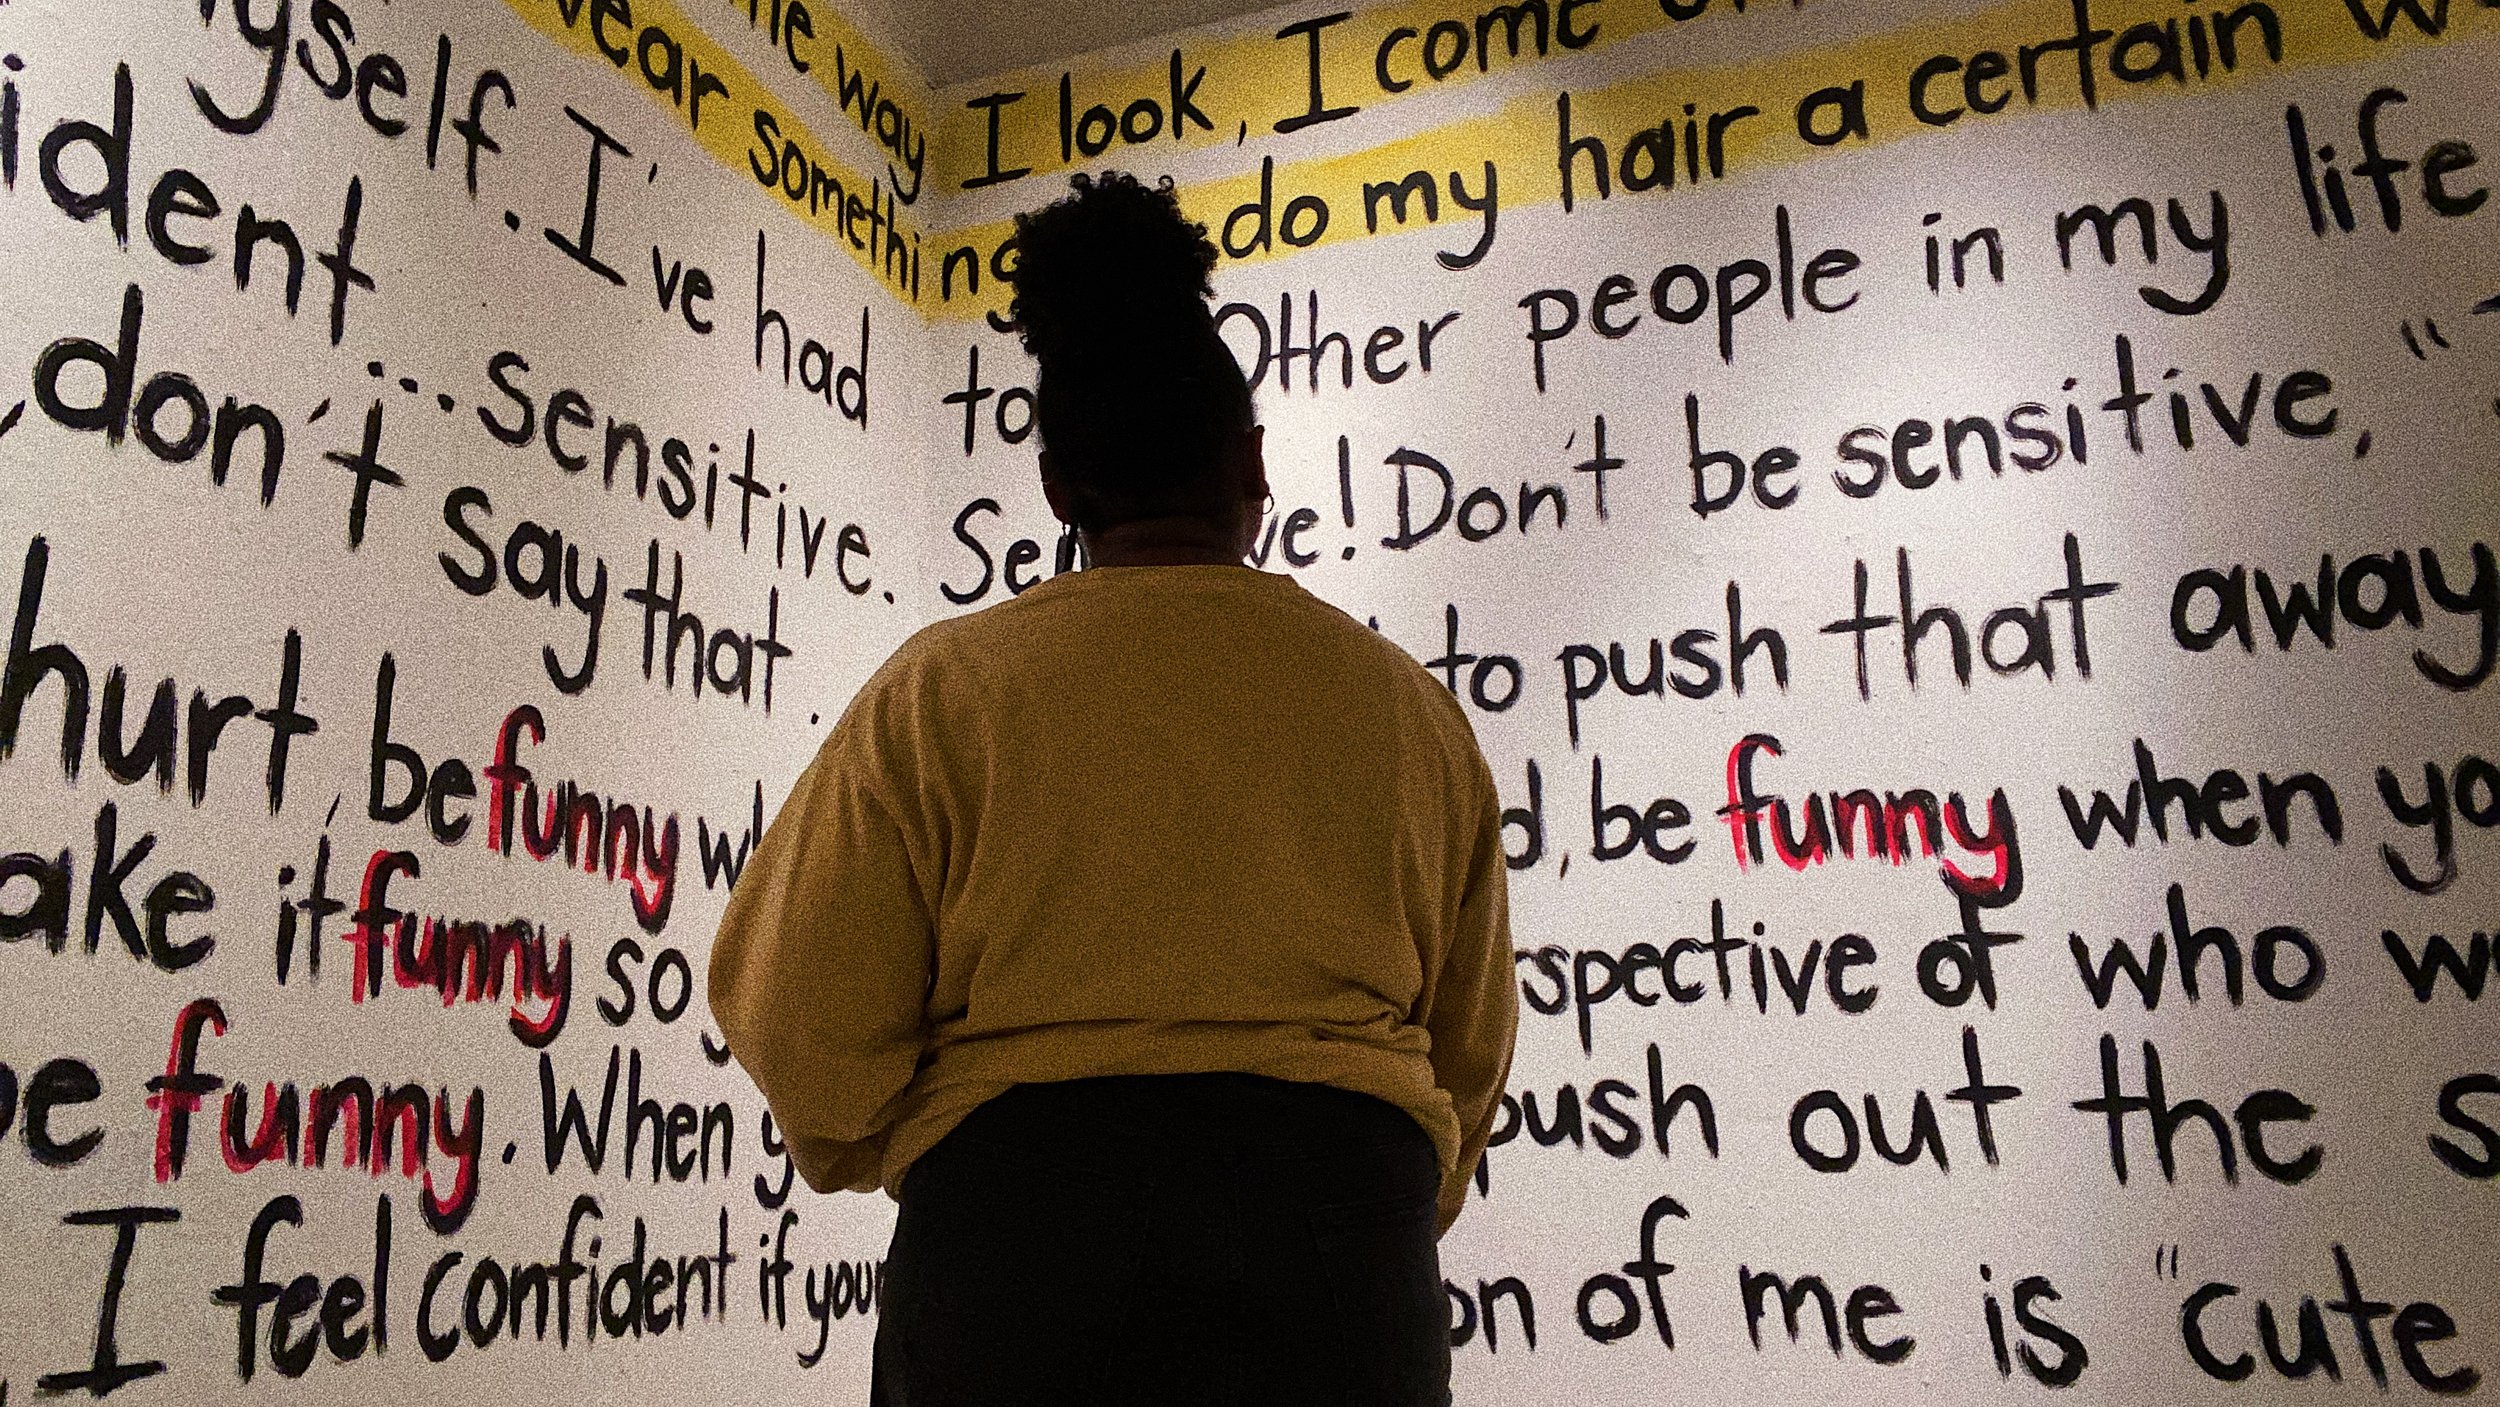 way I look, I come
wear something do my hair a certain
yself. I've had to Other people in my life
ident... sensitive. Se ve! Don't be sensitive, "
don't say that. to push that away
hurt, be funny be funny when yo
ake it funny so spective of who
e funny. When push out the
I feel confident if your on of me is "cute